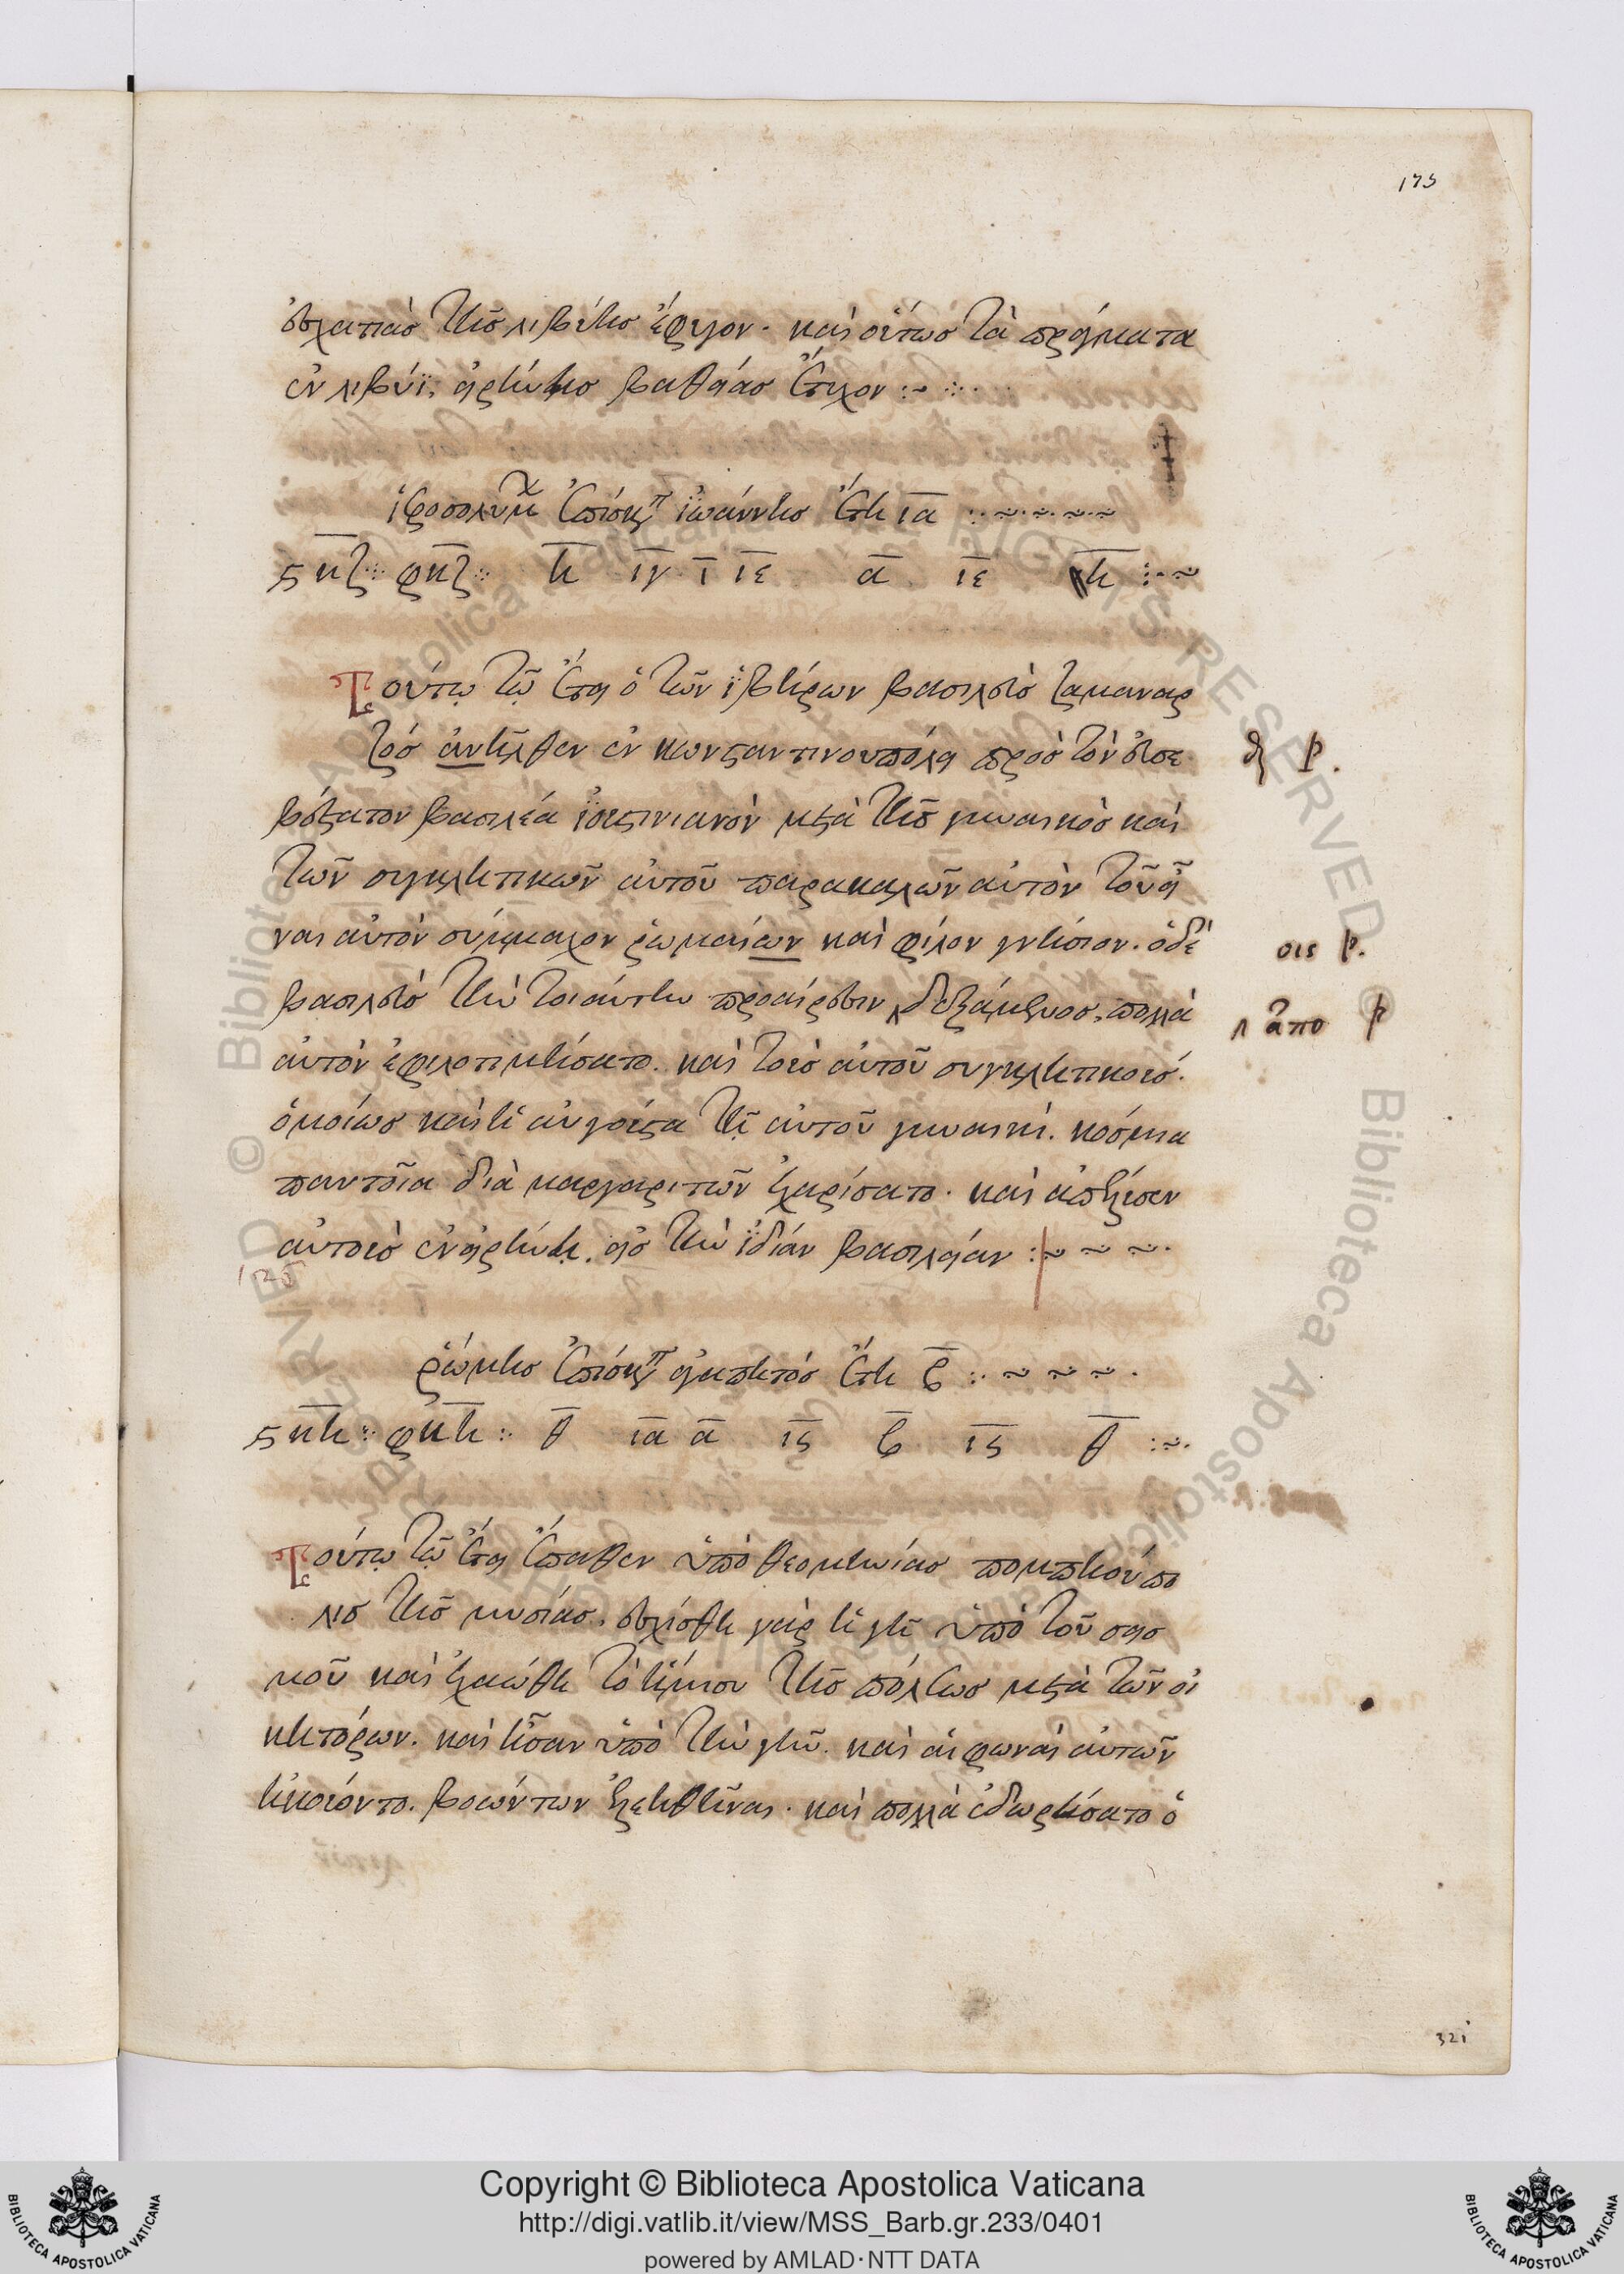 175
ἐσχατιὰς τῆς λιβύης ἔφυγον. καὶ οὕτως τὰ πράγματα
ἐν λιβύϊ, εἰρήνης βαθείας ἔτυχον :~
ἱεροσολύμ ἐπίσκοπ ἰωάννης ἔτη ια
ϛκζ: φκζ: η ιγ ι ιε α ιε η :~
Τούτῳ τῷ ἔτει ὁ τῶν ϊβήρων βασιλεὺς ζαμαναρ
ζός ἀνῆλθεν ἐν κωνσταντινουπόλει πρὸς τὸν εὐσε
βέστατον βασιλέα ϊουστινιανὸν μετὰ τῆς γυναικὸς καὶ
τῶν συγκλητικῶν αὐτοῦ παρακαλῶν αὐτὸν τοῦ εἶ
ναι αὐτὸν σύμμαχον ῥωμαίων καὶ φίλον γνήσιον. ὁ δὲ
βασιλεὺς τὴν τοιαύτην προαίρεσιν δεξάμενος, πολλὰ
αὐτὸν ἐφιλοτιμήσατο. καὶ τοὺς αὐτοῦ συγκλητικούς.
ὁμοίως καὶ ἡ αὐγούστα τῇ αὐτοῦ γυναικί. κόσμια
παντοῖα διὰ μαργαριτῶν ἐχαρίσατο. καὶ ἀπέλυσεν
αὐτοὺς ἐν εἰρήνῃ, εἰς τὴν ϊδίαν βασιλείαν :~ ~ ~.
ῥώμης ἐπίσκοπ ἀγαπητός ἔτη β :~ ~ ~ .
ϛκη: φκη: θ ια α ιϛ β ιϛ θ :~.
Τούτῳ τῷ ἔτει ἔπαθεν ὑπὸ θεομηνίας πομπηούπο
λις τῆς μυσίας. ἐσχίσθη γὰρ ἡ γῆ ὑπὸ τοῦ σεισ
μοῦ καὶ ἐχαώθη τὸ ἥμισυ τῆς πόλεως μετὰ τῶν οἰ
κητόρων. καὶ ἦσαν ὑπὸ τὴν γῆν. καὶ αἱ φωναὶ αὐτῶν
ἠκούοντο. βοώντων ἐλεηθῆναι. καὶ πολλὰ ἐδωρήσατο ὁ
οις
ἀπο
321
Copyright © Biblioteca Apostolica Vaticana
http://digi.vatlib.it/view/MSS_Barb.gr.233/0401
powered by AMLAD·NTT DATA
BIBLIOTECA APOSTOLICA VATICANA
BIBLIOTECA APOSTOLICA VATICANA